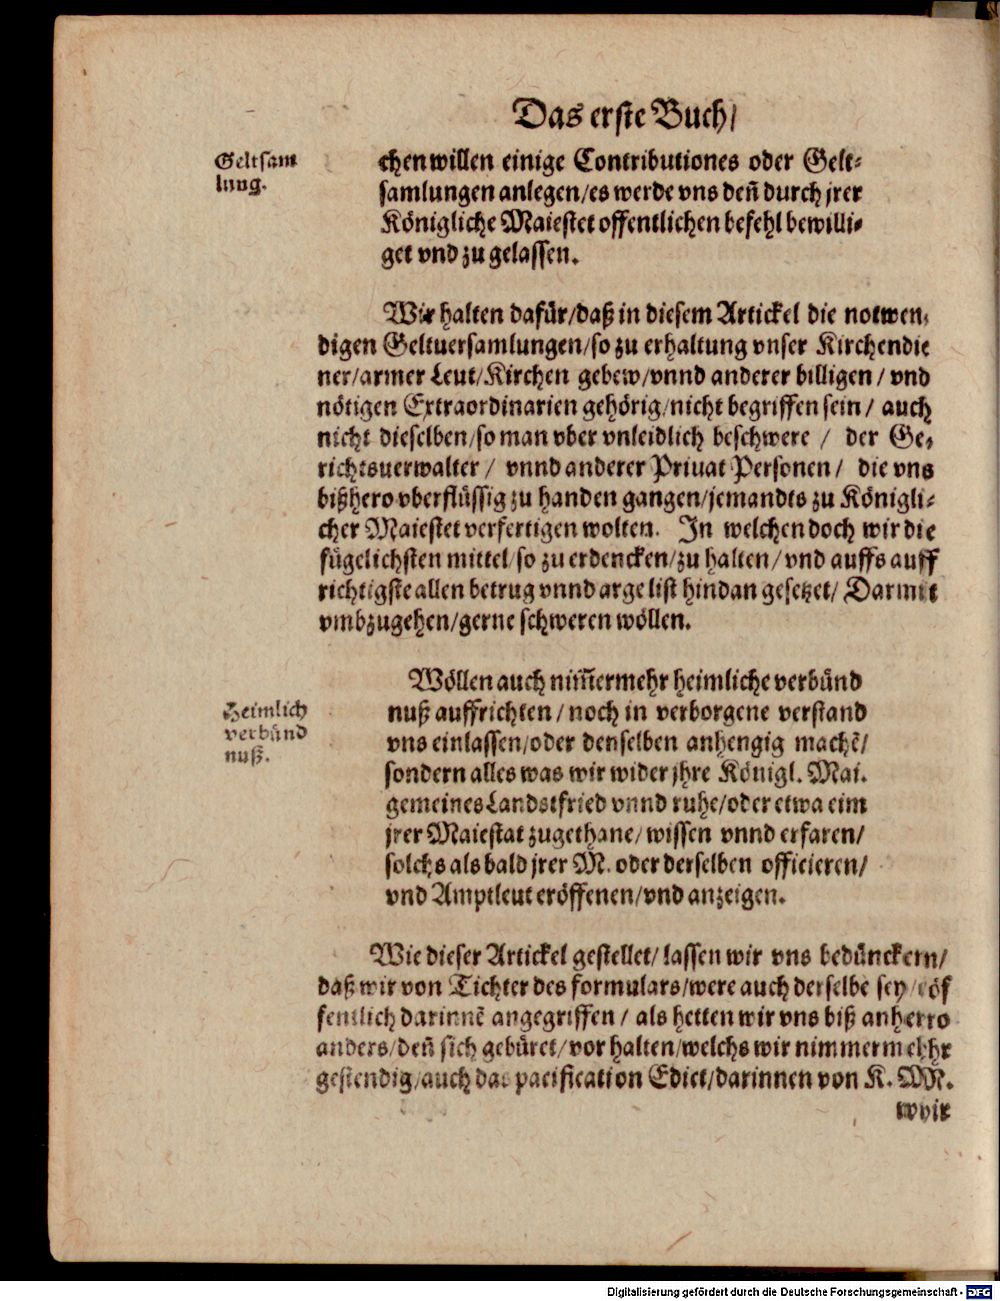 Das erste Buch/
Geltsam
lung.
chen willen einige Contributiones oder Gelt⸗
samlungen anlegen/es werde vns deñ durch jrer
Königliche Maiestet offentlichen befehl bewilli⸗
get vnd zu gelassen.
Wir halten dafür/daß in diesem Artickel die notwen⸗
digen Geltuersamlungen/so zu erhaltung vnser Kirchendie
ner/armer Leut/Kirchen gebew/vnnd anderer billigen/ vnd
nötigen Extraordinarien gehörig/nicht begriffen sein/ auch
nicht dieselben/so man vber vnleidlich beschwere / der Ge⸗
richtsuerwalter / vnnd anderer Priuat Personen/ die vns
bißhero vberflüssig zu handen gangen/jemandts zu Königli⸗
cher Maiestet verfertigen wolten. In welchen doch wir die
fügelichsten mittel/so zu erdencken/zu halten/ vnd auffs auff
richtigste allen betrug vnnd arge list hindan gesetzet/ Darmit
vmbzugehen/gerne schweren wöllen.
Heimlich
verbünd
nuß.
Wöllen auch nim̃ermehr heimliche verbünd
nuß auffrichten/ noch in verborgene verstand
vns einlassen/oder denselben anhengig machẽ/
sondern alles was wir wider jhre Königl. Mai.
gemeines Landstfried vnnd ruhe/oder etwa eim
jrer Maiestat zugethane/ wissen vnnd erfaren/
solchs als bald jrer M. oder derselben officieren/
vnd Amptleut eröffenen/vnd anzeigen.
Wie dieser Artickel gestellet/ lassen wir vns bedünckem/
daß wir von Tichter des formulars/were auch derselbe sey/ öf
fentlich darinnẽ angegriffen / als hetten wir vns biß anherro
anders/deñ sich gebüret/ vor halten/welchs wir nimmermehhr
gestendig/auch das pacification Edict/darinnen von K. MM.
wvir
Digitalisierung gefördert durch die Deutsche Forschungsgemeinschaft - DFG